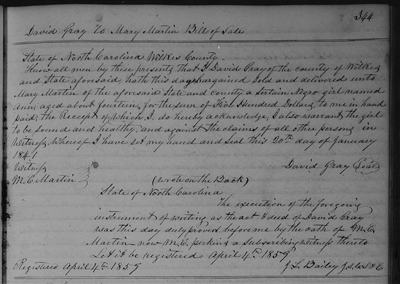 344
David Gray to Mary Martin Bill of Sale
State of North Carolina Wilkes County.
Know all men by these presents that I David Gray of the county of Wilkes
and State aforesaid, hath this day bargained Sold and delivered unto
Mary Martin of the aforesaid State and county a certain Negro girl named
Ann, aged about fourteen, for the sum of Five Hundred Dollars to me in hand
paid, the Receipt of which I do hereby acknowledge, I also warrant the girl
to be sound and healthy, and against the claims of all other persons in
Witness, whereof I have set my hand and seal this 20th day of January
1841
Witness David Gray Seal
M. C. Martin
(wrote on the Back)
State of North Carolina
The execution of the foregoing
instrument of writing as the act & deed of David Gray
was this day duly proved before me by the oath of M. C.
Martin now M. C. a subscribing witness thereto
Let it be registered April 4th 1859
Registered April 4th 1859 J. L. Bailey